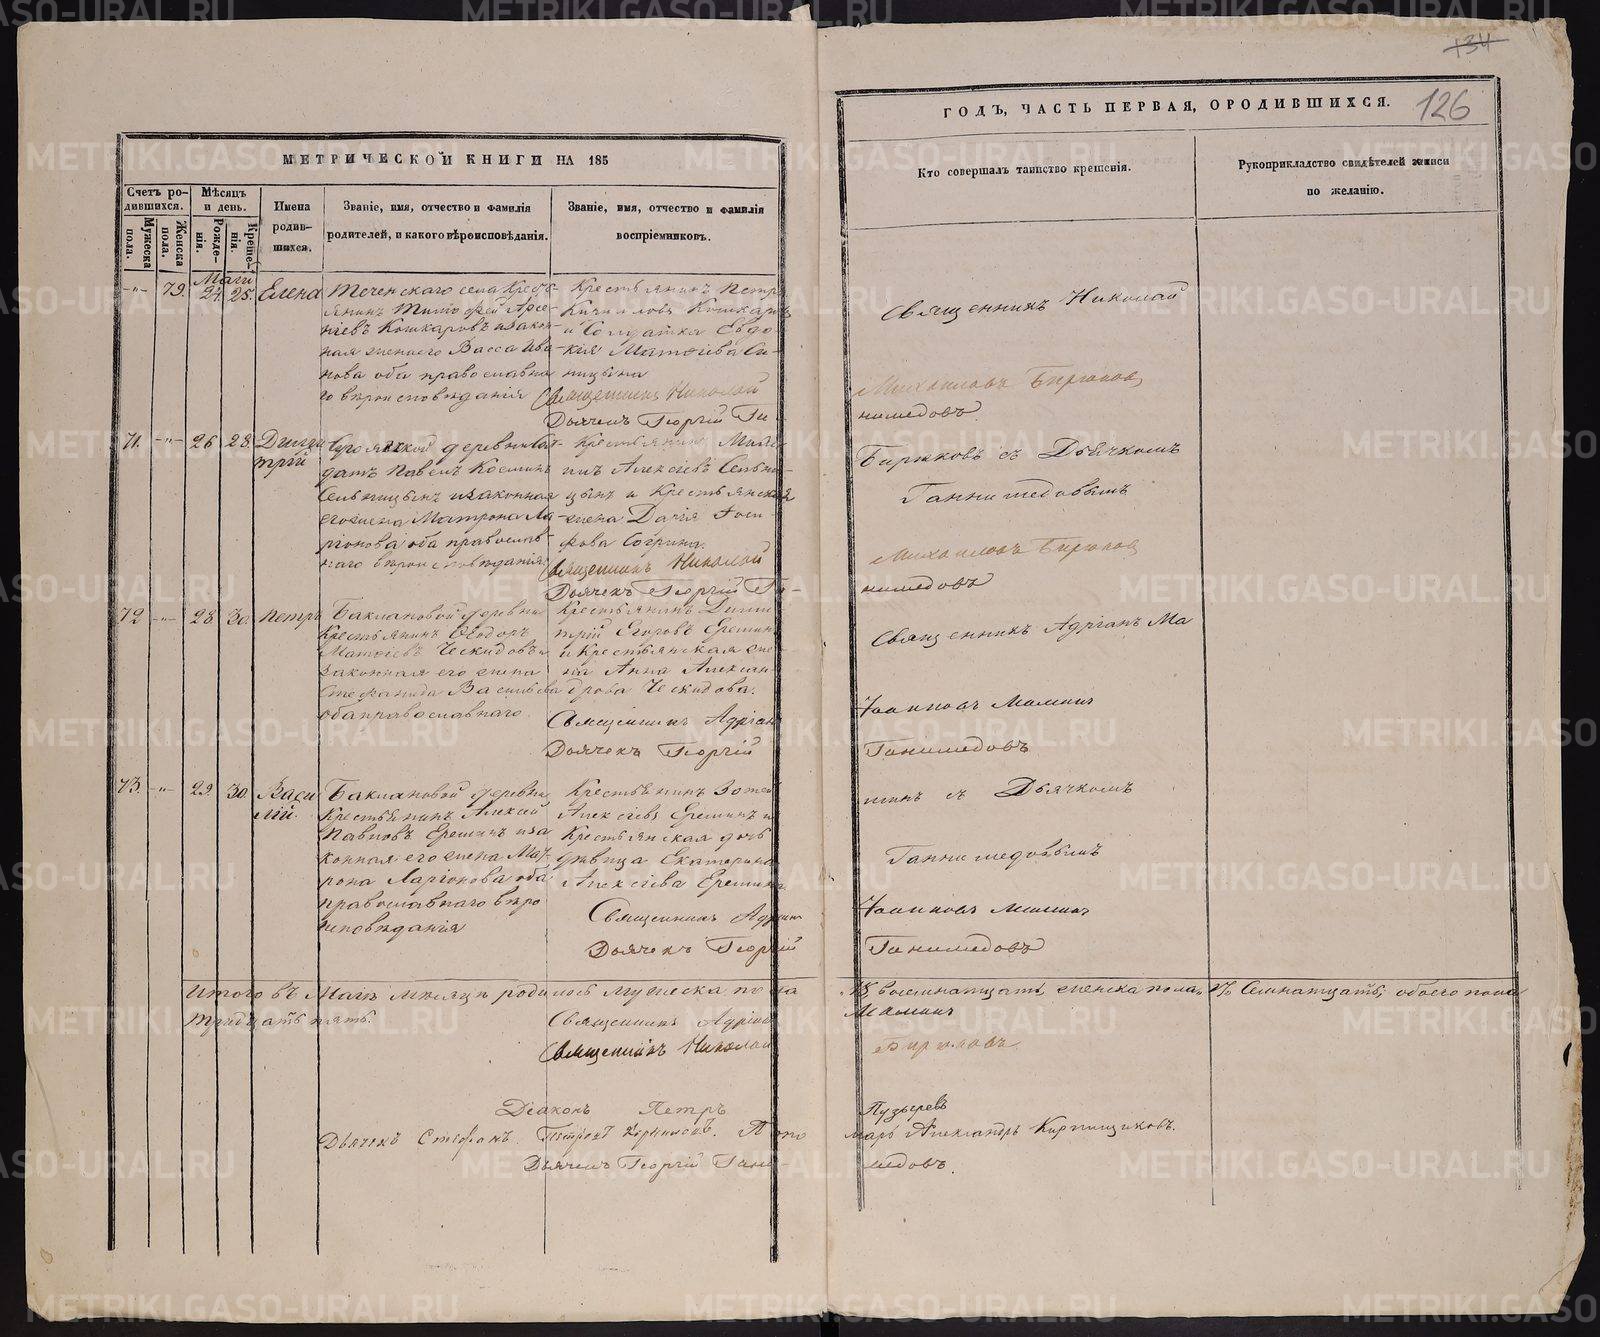 134
126
МЕТРИЧЕСКОЙ КНИГИ НА 185
ГОДЪ, ЧАСТЬ ПЕРВАЯ, О РОДИВШИХСЯ.
Счетъ ро-
дившихся.
Мужеска
пола.
Женска
пола.
Мѣсяцъ
и день.
Рожде-
нія.
Креще-
нія.
Имена
родив-
шихся.
Званіе, имя, отчество и фамилія
родителей, и какого вѣроисповѣданія.
Званіе, имя, отчество и фамилія
воспріемниковъ.
Кто совершалъ таинство крещенія.
Рукоприкладство свидѣтелей записи
по желанію.
-"- 79. 24. 25. Елена
Теченскаго села Кресть-
янинъ Тимофей Арсе-
ніевъ Кошкаровъ и закон-
ная жена его Васса Ива-
нова оба православна-
го вѣроисповѣданія
Крестьянинъ Петръ
Кириловъ Кошкаровъ
и Солдатка Евдо-
кія Матѳіева Си-
ницына
Священникъ Николай
Священникъ Николай
Михаиловъ Бирюковъ
Дьячекъ Георгій Га-
нимедовъ
71. -"- 26 28. Дими
трій
деревни Сол-
датъ Павелъ Косминъ
Сельницынъ и законная
его жена Матрона Ла-
ріонова оба православ-
наго вѣроисповѣданія
Крестьянинъ
Алексіевъ Сельни-
цынъ и Крестьянская
жена Дарія Іоси-
фова Согрина.
Священникъ Николай
Бирюковъ съ Дьячкомъ
Ганимедовымъ
Михаиловъ Бирюковъ
Дьячекъ Георгій Га-
нимедовъ
72 -"- 28 30. Петръ
Баклановой деревни
Крестьянинъ Ѳеодоръ
Матѳіевъ Ческидовъ и
законная его жена
Стефанида Васильева
оба православнаго
Крестьянинъ Дими
трій Егоровъ Ерёминъ
и Крестьянская же-
на Анна Алексан
дрова Ческидова.
Священникъ Адріанъ
Дьячекъ Георгій
Священникъ Адріанъ Ма
Іоанновъ Маминъ
Ганимедовъ
73. -"- 29. 30. Васи
лій.
Баклановой деревни
Крестьянинъ Алексій
Павловъ Ереминъ и за
конная его жена Мат-
рона Ларіонова оба
православнаго вѣро
исповѣданія
Крестьянинъ
Алексіевъ Ереминъ и
Крестьянская дочь
дѣвица Екатерина
Алексіева Еремина.
Священникъ Адріанъ
Дьячекъ Георгій
минъ съ Дьячкомъ
Ганимедовымъ
Іоанновъ Маминъ
Ганимедовъ
Итого въ Маіѣ мѣсяцѣ родилось мужеска пола 18 восемнатцать, женска пола 17 семнатцать, обоего пола
тридцать пять.
Священникъ Адріанъ Маминъ
Священникъ Николай Бирюковъ
Діаконъ Петръ Пузыревъ
Дьячекъ Стефанъ Поно
марь Александръ Кирпищиковъ.
Дьячекъ Георгій Гани-
медовъ.
METRIKI.GASO-URAL.RU